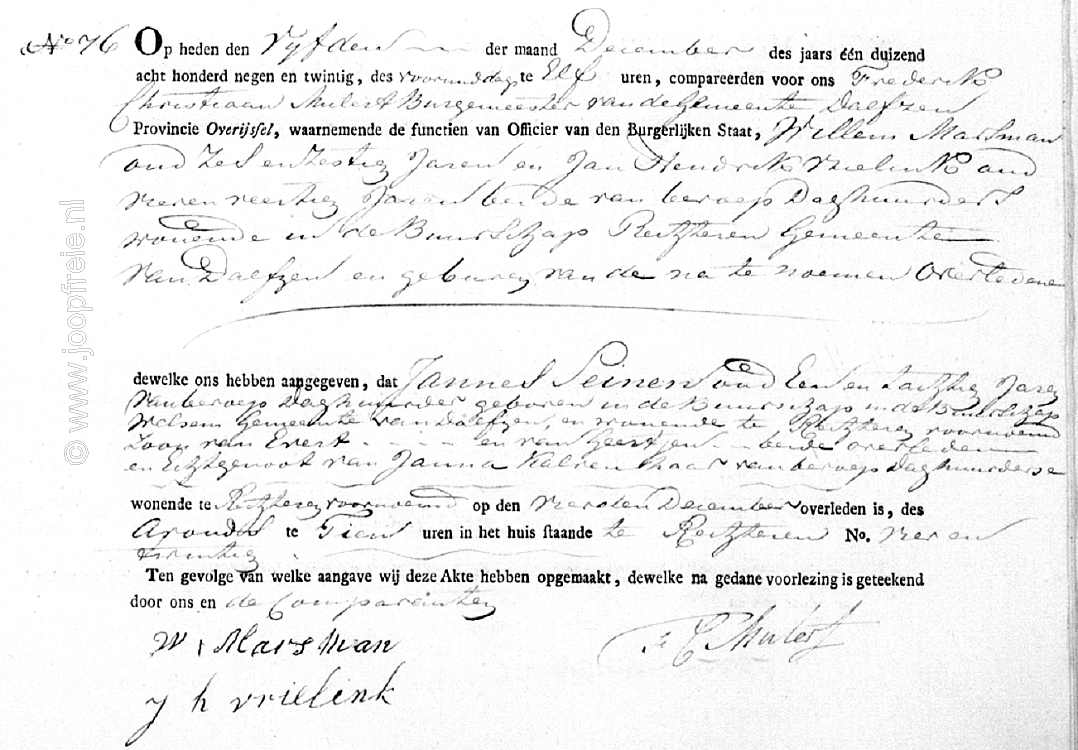 No 76 Op heden den Vyfden der maand December des jaars één duizend
acht honderd negen en twintig, des voormiddags te Elf uren, compareerden voor ons Frederik
Christiaan Mulert Burgemeester van de Gemeente Dalfzen
Provincie Overijssel, waarnemende de functien van Officier van den Burgerlijken Staat, Willem Marsman
oud Zes en Zestig Jaren en Jan Hendrik Vrielink oud
vier en veertig Jaren beide van beroep Daghuurders
wonende in de Buurschap Rechteren Gemeente
van Dalfzen en geburen van de na te noemen Overledenen
dewelke ons hebben aangegeven, dat Jannes Seinen oud Een en Jaren
van beroep Daghuurder geboren in de Buurschap in de Buurschap
Welsem Gemeente van Dalfzen en wonende te Rechteren voornoemd
Zoon van Evert en van Geertjen beide overleden
en Echtgenoot van Janna van beroep Daghuurderse
wonende te Rechteren voornoemd op den Vierden December overleden is, des
Avonds te Tien uren in het huis staande te Rechteren No. vier en
twintig
Ten gevolge van welke aangave wij deze Akte hebben opgemaakt, dewelke na gedane voorlezing is geteekend
door ons en de Comparanten
W Marsman
F C Mulert
J h vrielink
© www.joopfreie.nl